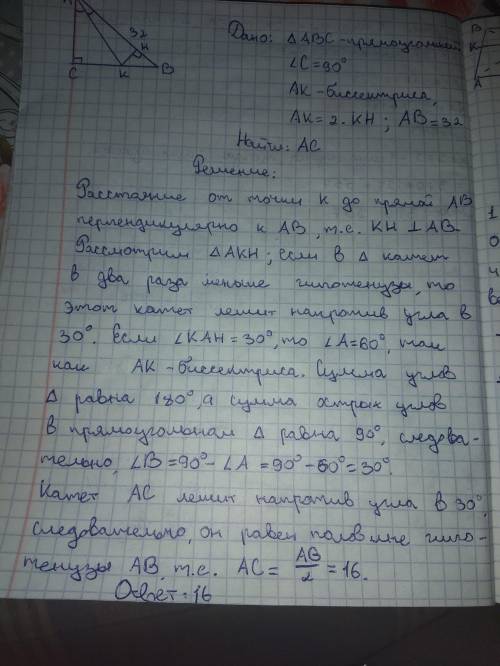 32
H
C
K
B
Дано: △ABC - прямоугольный
∠C = 90°
AK - биссектриса,
AK = 2 · KH ; AB = 32
Найти: AC
Решение:
Расстояние от точки K до прямой AB
перпендикулярно к AB, т.е. KH ⊥ AB.
Рассмотрим △AKH; если в △ катет
в два раза меньше гипотенузы, то
этот катет лежит напротив угла в
30°. Если ∠KAH = 30°, то ∠A = 60°, так
как AK - биссектриса. Сумма углов
△ равна 180°, а сумма острых углов
в прямоугольном △ равна 90°, следова-
тельно, ∠B = 90° - ∠A = 90° - 60° = 30°.
Катет AC лежит напротив угла в 30°,
следовательно, он равен половине гипо-
тенузы AB, т.е. AC = AB/2 = 16.
Ответ: 16
B
K
A